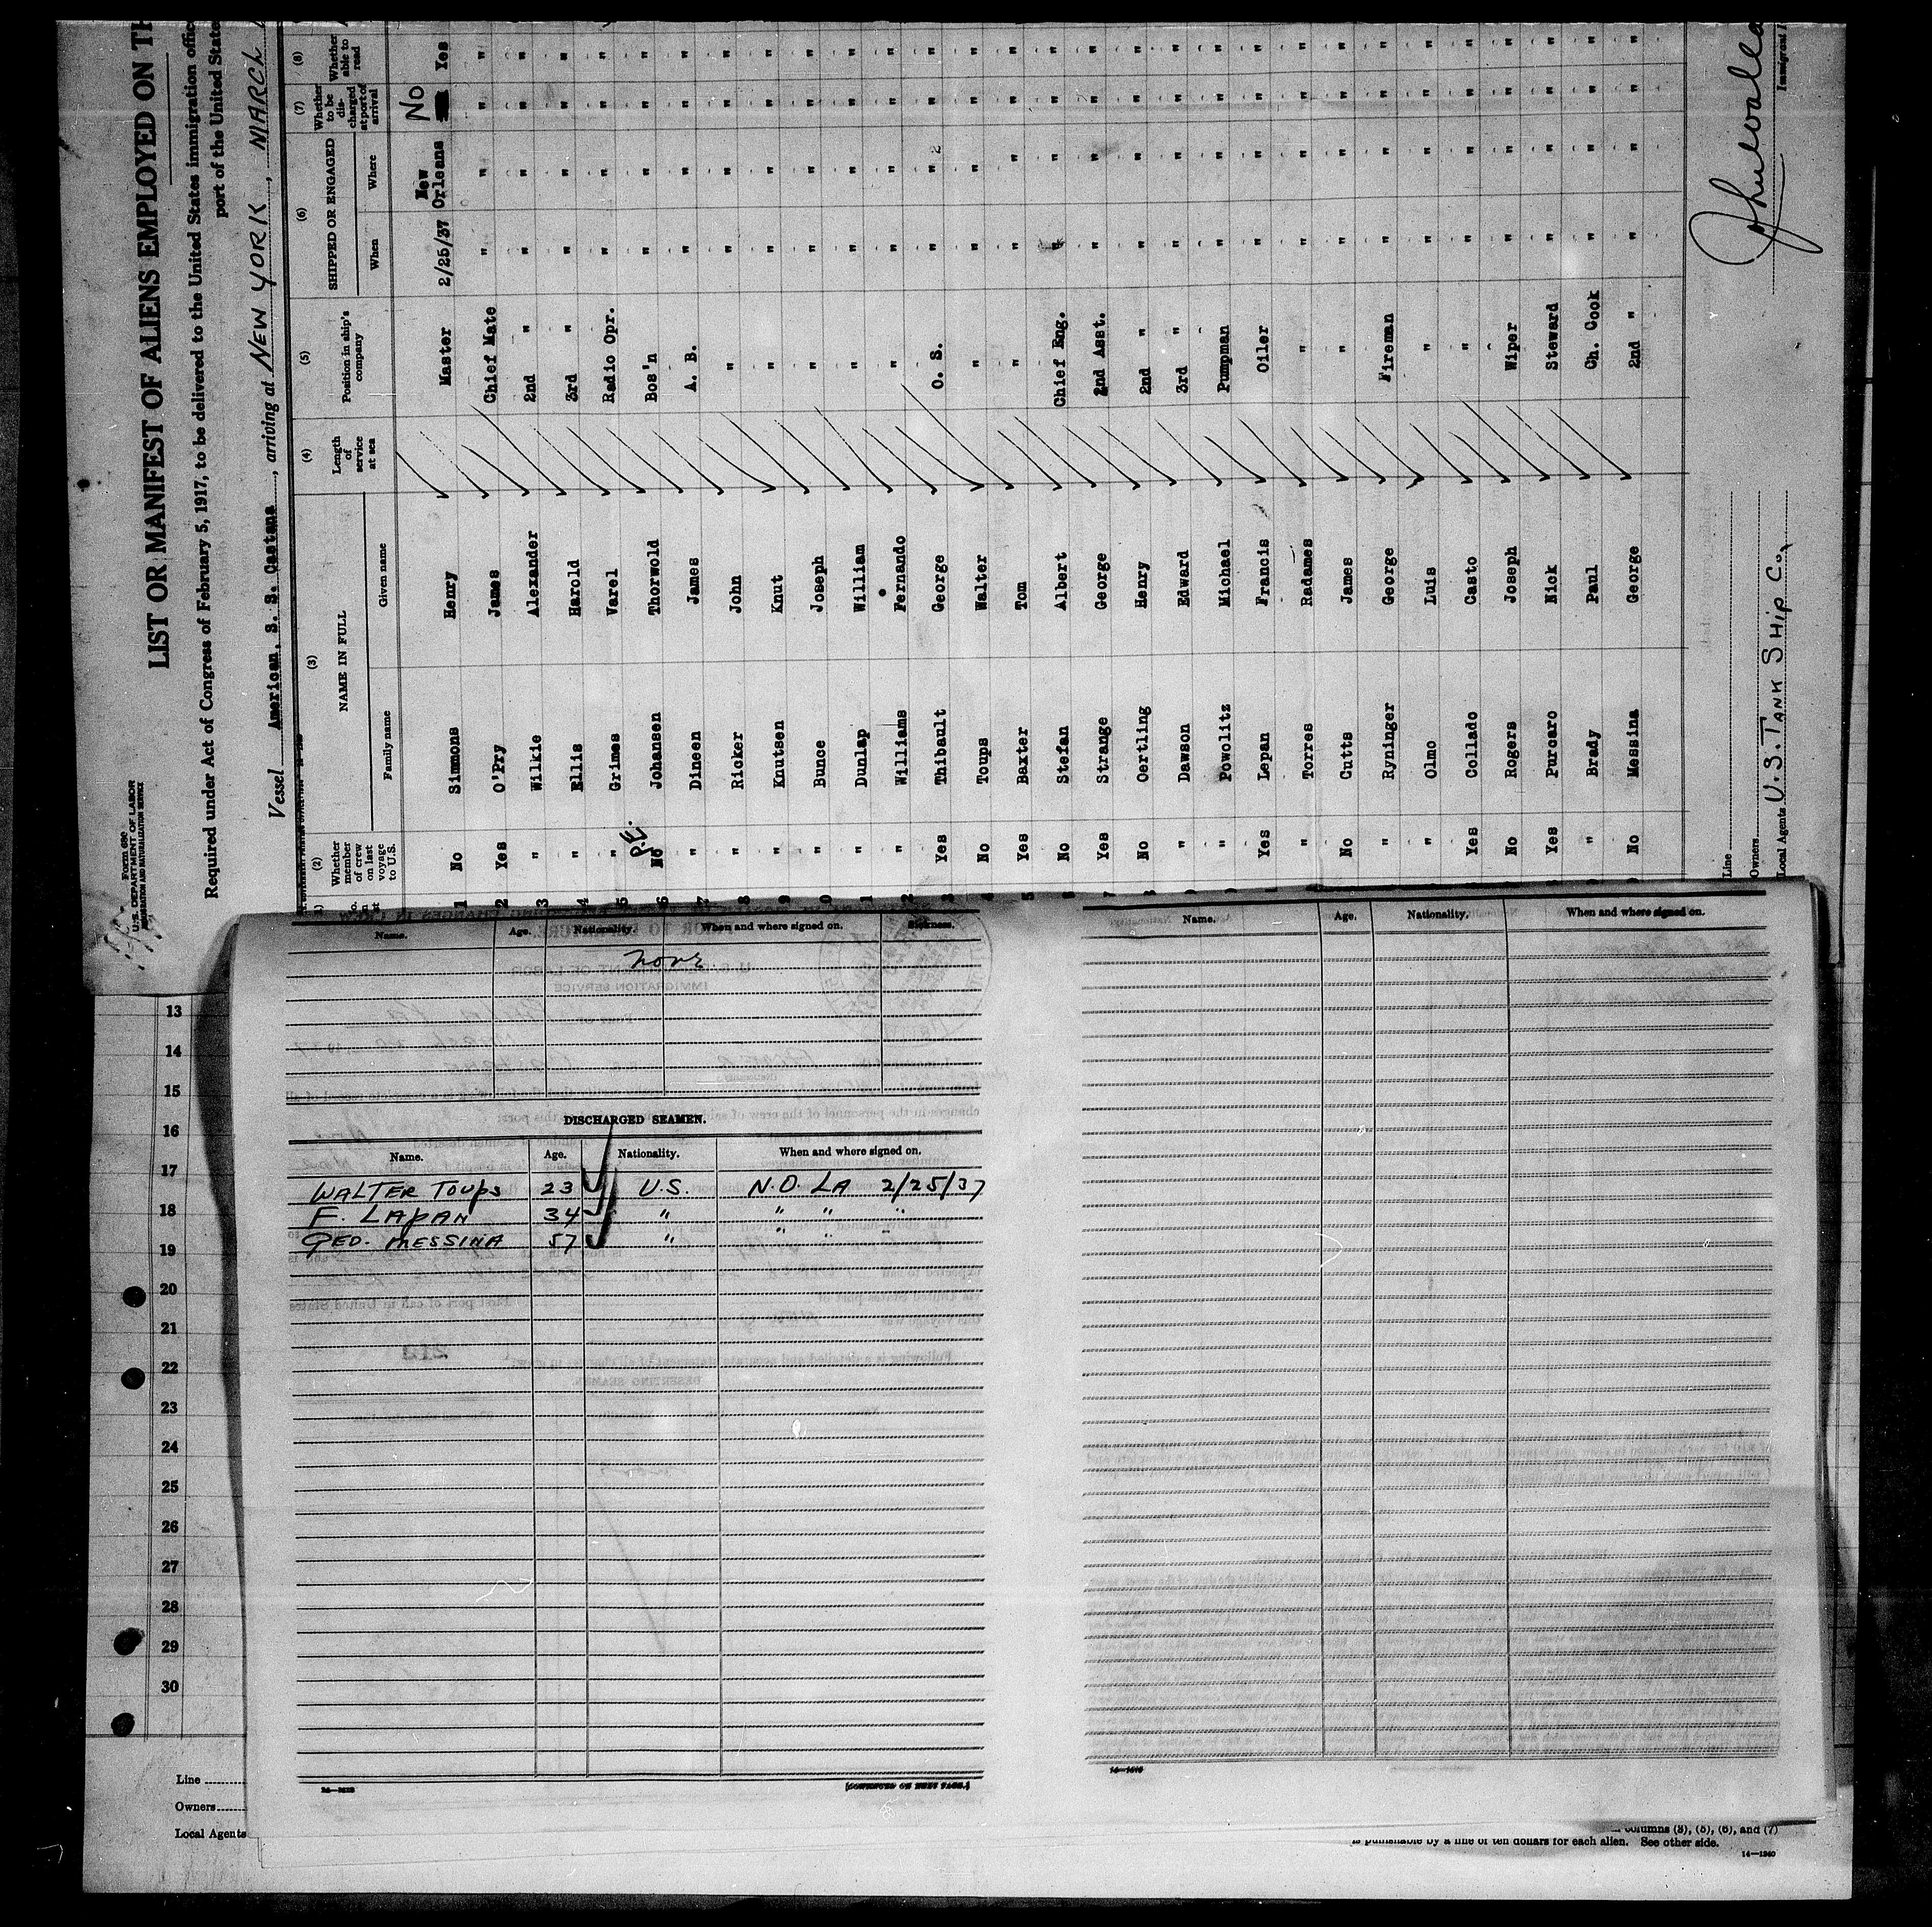 Form 680
U.S. DEPARTMENT OF LABOR
IMMIGRATION AND NATURALIZATION SERVICE
LIST OR MANIFEST OF ALIENS EMPLOYED ON TH
Required under Act of Congress of February 5, 1917, to be delivered to the United States immigration offic
port of the United State
Vessel American. S. S. Castana, arriving at NEW YORK, MARCH
(2) (3) (4) (5) (6) (7) (8)
Whether member of crew on last voyage to U.S. NAME IN FULL Length of service at sea Position in ship's company SHIPPED OR ENGAGED Whether to be discharged at port of arrival Whether able to read
Family name Given name When Where
1 No Simmons Henry Master 2/25/37 New Orleans No Yes
2 Yes O'Pry James Chief Mate " " " "
3 " Wilkie Alexander 2nd " " " " "
4 " Ellis Harold 3rd " " " " "
5 " Grimes Varel Radio Opr. " " " "
6 No Johansen Thorwold Bos'n " " " "
7 " Dineen James A. B. " " " "
8 " Ricker John " " " " "
9 " Knutsen Knut " " " " "
0 " Bunce Joseph " " " " "
1 " Dunlap William " " " " "
2 " Williams Fernando " " " " "
3 Yes Thibault George O. S. " " " "
4 No Toups Walter " " " " "
5 Yes Baxter Tom " " " " "
6 No Stefan Albert Chief Eng. " " " "
7 Yes Strange George 2nd Asst. " " " "
8 No Oertling Henry 2nd " " " " "
" Dawson Edward 3rd " " " " "
" Powolitz Michael Pumpman " " " "
Yes Lepan Francis Oiler " " " "
" Torres Radames " " " " "
No Cutts James " " " " "
" Ryninger George Fireman " " " "
" Olmo Luis " " " " "
Yes Collado Casto " " " " "
No Rogers Joseph Wiper " " " "
Yes Purcaro Nick Steward " " " "
" Brady Paul Ch. Cook " " " "
No Messina George 2nd " " " " "
Line
Owners
Local Agents U.S. TANK SHIP Co.
Immigrant I
Name. Age. Nationality. When and where signed on. Sickness.
none
DISCHARGED SEAMEN.
Name. Age. Nationality. When and where signed on.
WALTER TOUPS 23 U.S. N.O. LA 2/25/37
F. LAPAN 34 " " " "
GEO. MESSINA 57 " " " "
14—1240
[CONTINUED ON NEXT PAGE.]
Name. Age. Nationality. When and where signed on.
13
14
15
16
17
18
19
20
21
22
23
24
25
26
27
28
29
30
Line
Owners
Local Agents
columns (3), (5), (6), and (7)
is punishable by a fine of ten dollars for each alien. See other side.